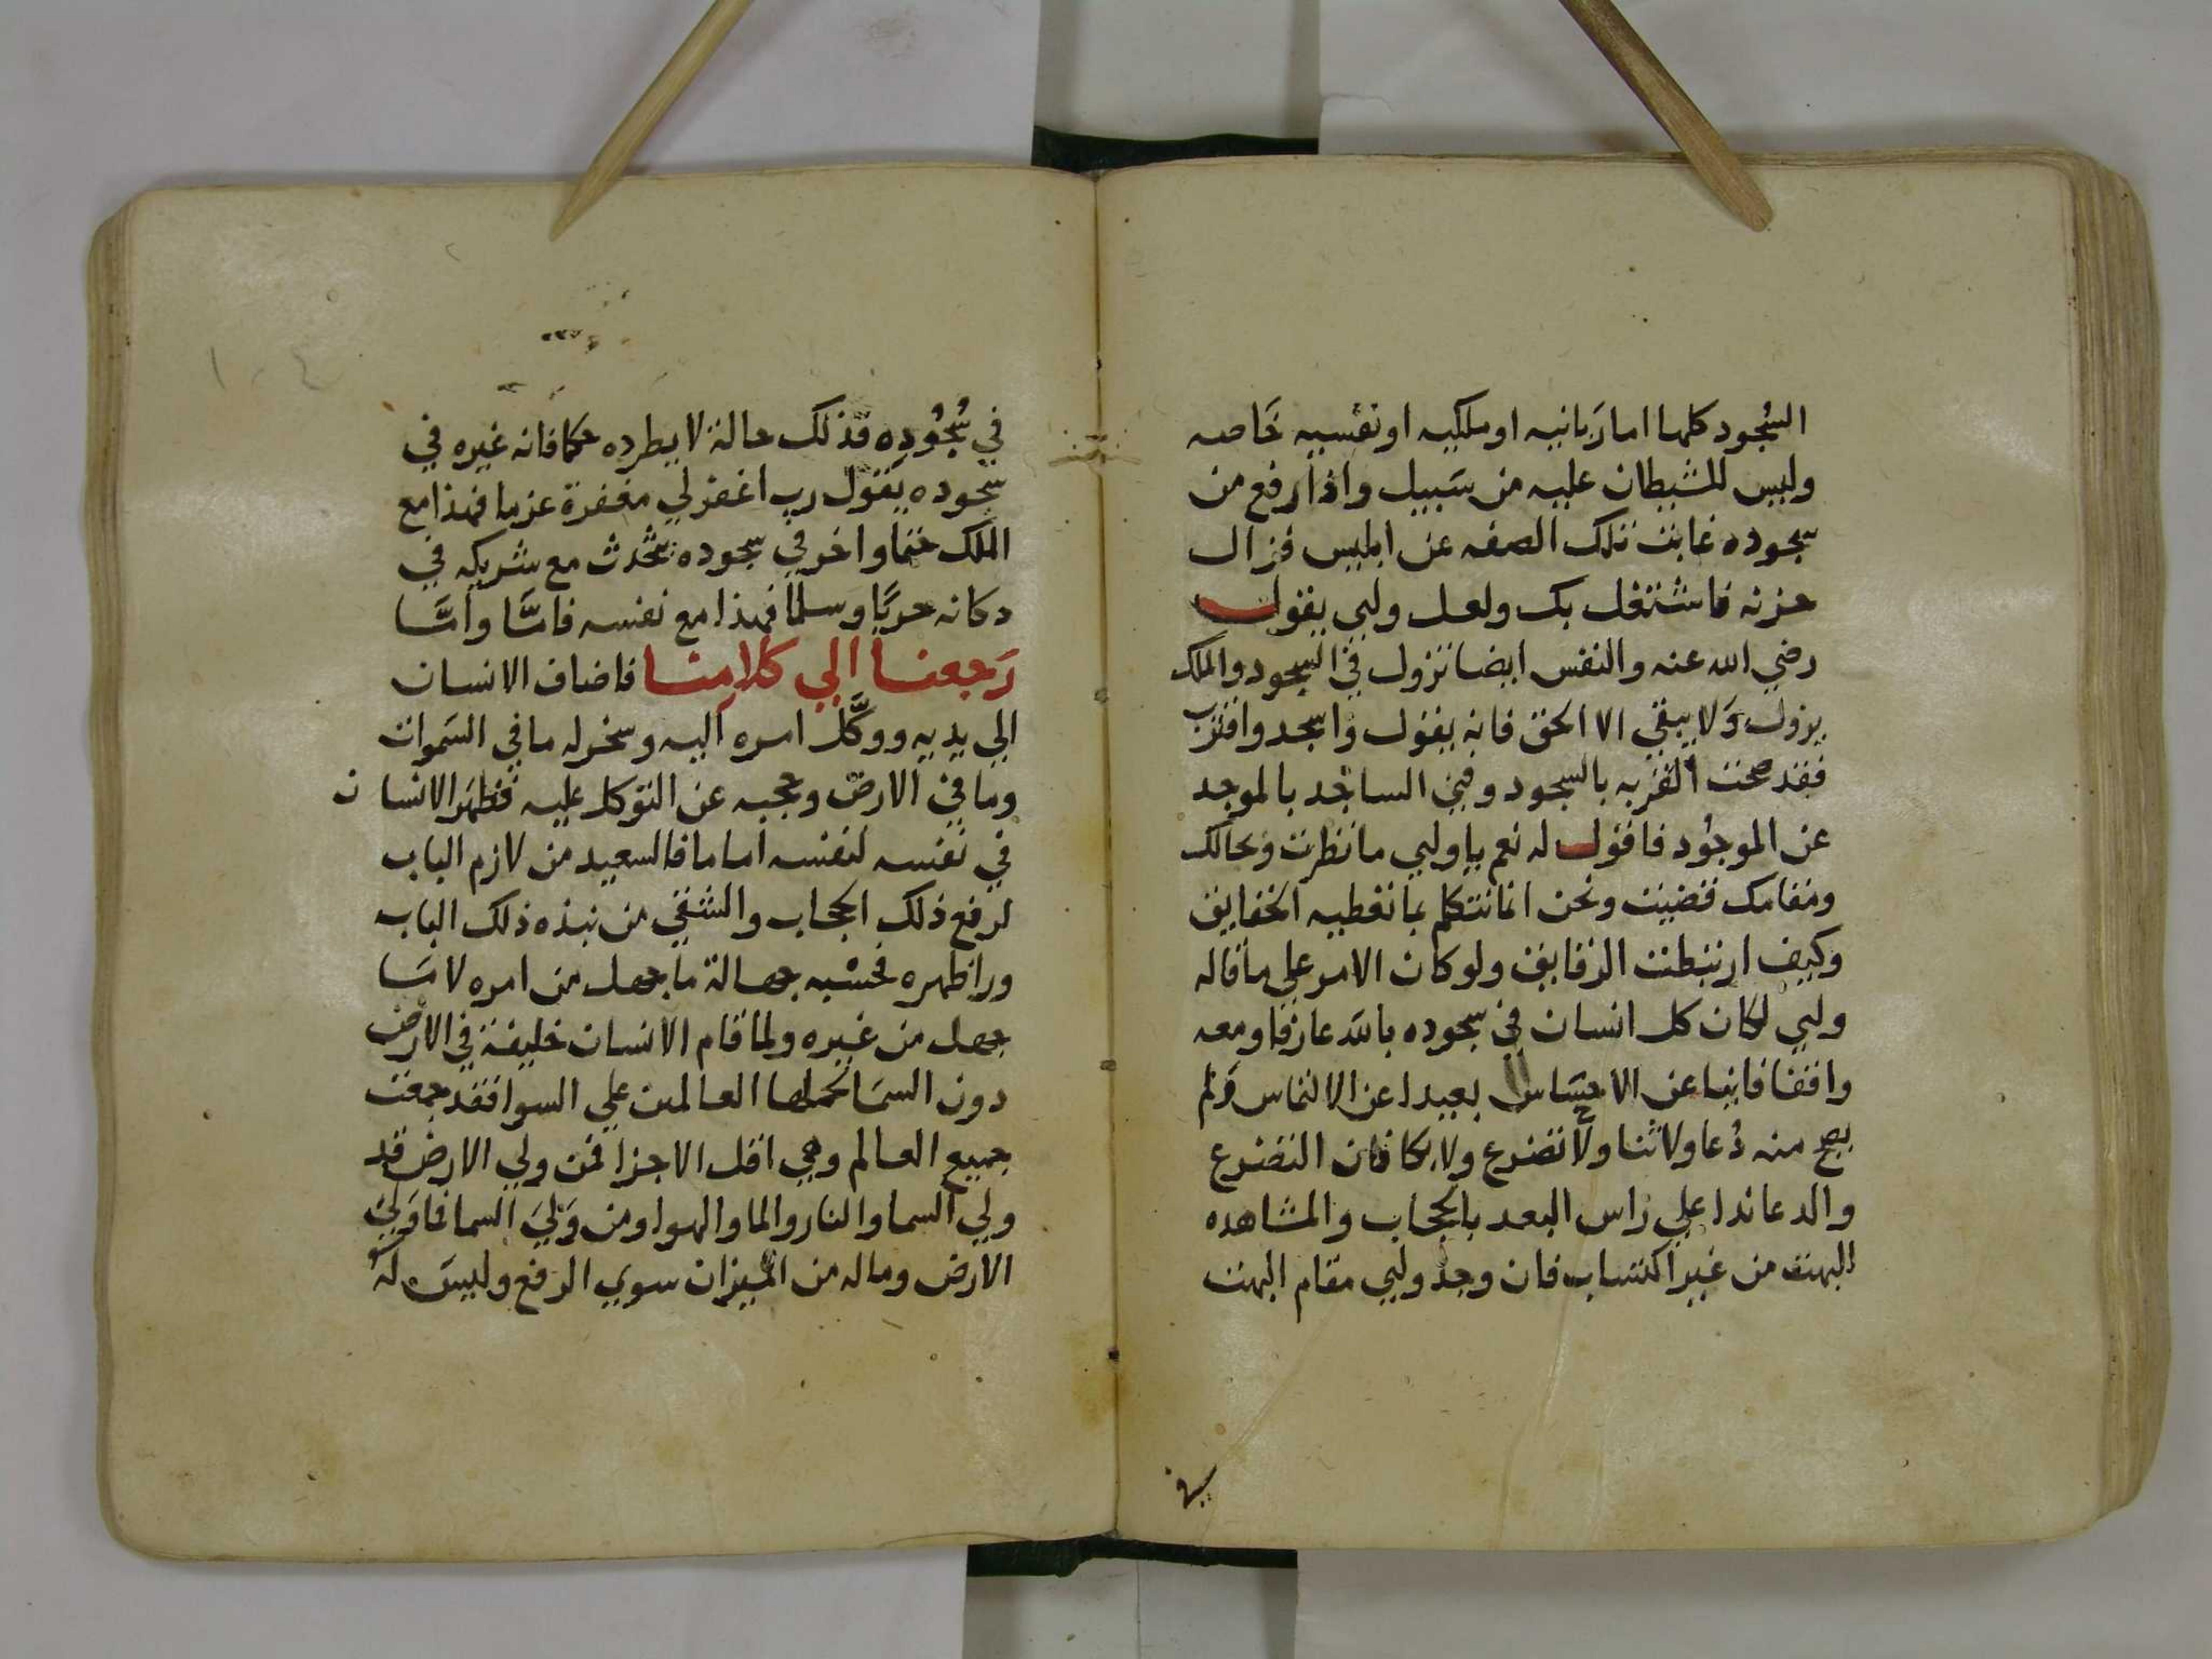 السُجود كلها اما رَبانيه او ملكيه او نفسيه خَاصه
وليس للشيطان عليه من سَبيل واذا رفع من
سجوده غابت تلك الصفه عن ابليس فزال
حزنه فاشتغل بك ولعل وليي يقول
رضي الله عنه والنفس ايضا تزول في السجود والملك
يزول وَلا يبقي الا الحق فانه يقول واسجد واقترب
فقد صحت القربه بالسجود وفني الساجد بالموجد
عن الموجُود فاقول له نعم يا وليي ما نظرت وبحالك
ومقامك قضيت ونحن انما نتكلم بما تعطيه الحقايق
وكيف ارتبطت الرقايق ولو كان الامر علي ما قاله
وليي لكان كل انسان في سجوده بالله عارفا ومعه
واقفا فانيا عن الاحسَاس بعيدا عن الالتماس وَلم
يصح منه دُعا ولا ثنا ولا تضرع ولا بكا فان التضرع
والدعا ندا علي راس البعد بالحجاب والمشاهده
البهت من غير اكتساب فان وجد وليي مقام البهت
في
في سُجُوده فذلك حالة لا يطرده حكما فانه غيره في
سجوده يقول رب اغفر لي مغفرة عزما فهذا مع
الملك حتما واخر في سجوده يتحدث مع شريكه في
دكانه حربًا وسلما فهذا مع نفسه فامَّا وامَّا
رَجعنا الي كلامنا فاضاف الانسان
الي يديه ووكَّل امره اليه وسخر له ما في السَموات
وما في الارض وحجبه عن التوكل عليه فظهَر الانسان
في نفسه لنفسه اماما فالسعيد من لازم الباب
لرفع ذلك الحجاب والشقي من نبذه ذلك الباب
ورا ظهره فحسْبه جهالة ما جهل من امره لا مَا
جهل من غيره ولما قام الانسان خليفة في الارض
دون السمَا تحملها العالمين علي السوا فقد جمعت
جميع العالم وهي اقل الاجزا فمن ولي الارض قد
ولي السما والنار والما والهوا ومن وَليَ السما فما وَليَ
الارض وماله من الميزان سوي الرفع وليسَ لهُ